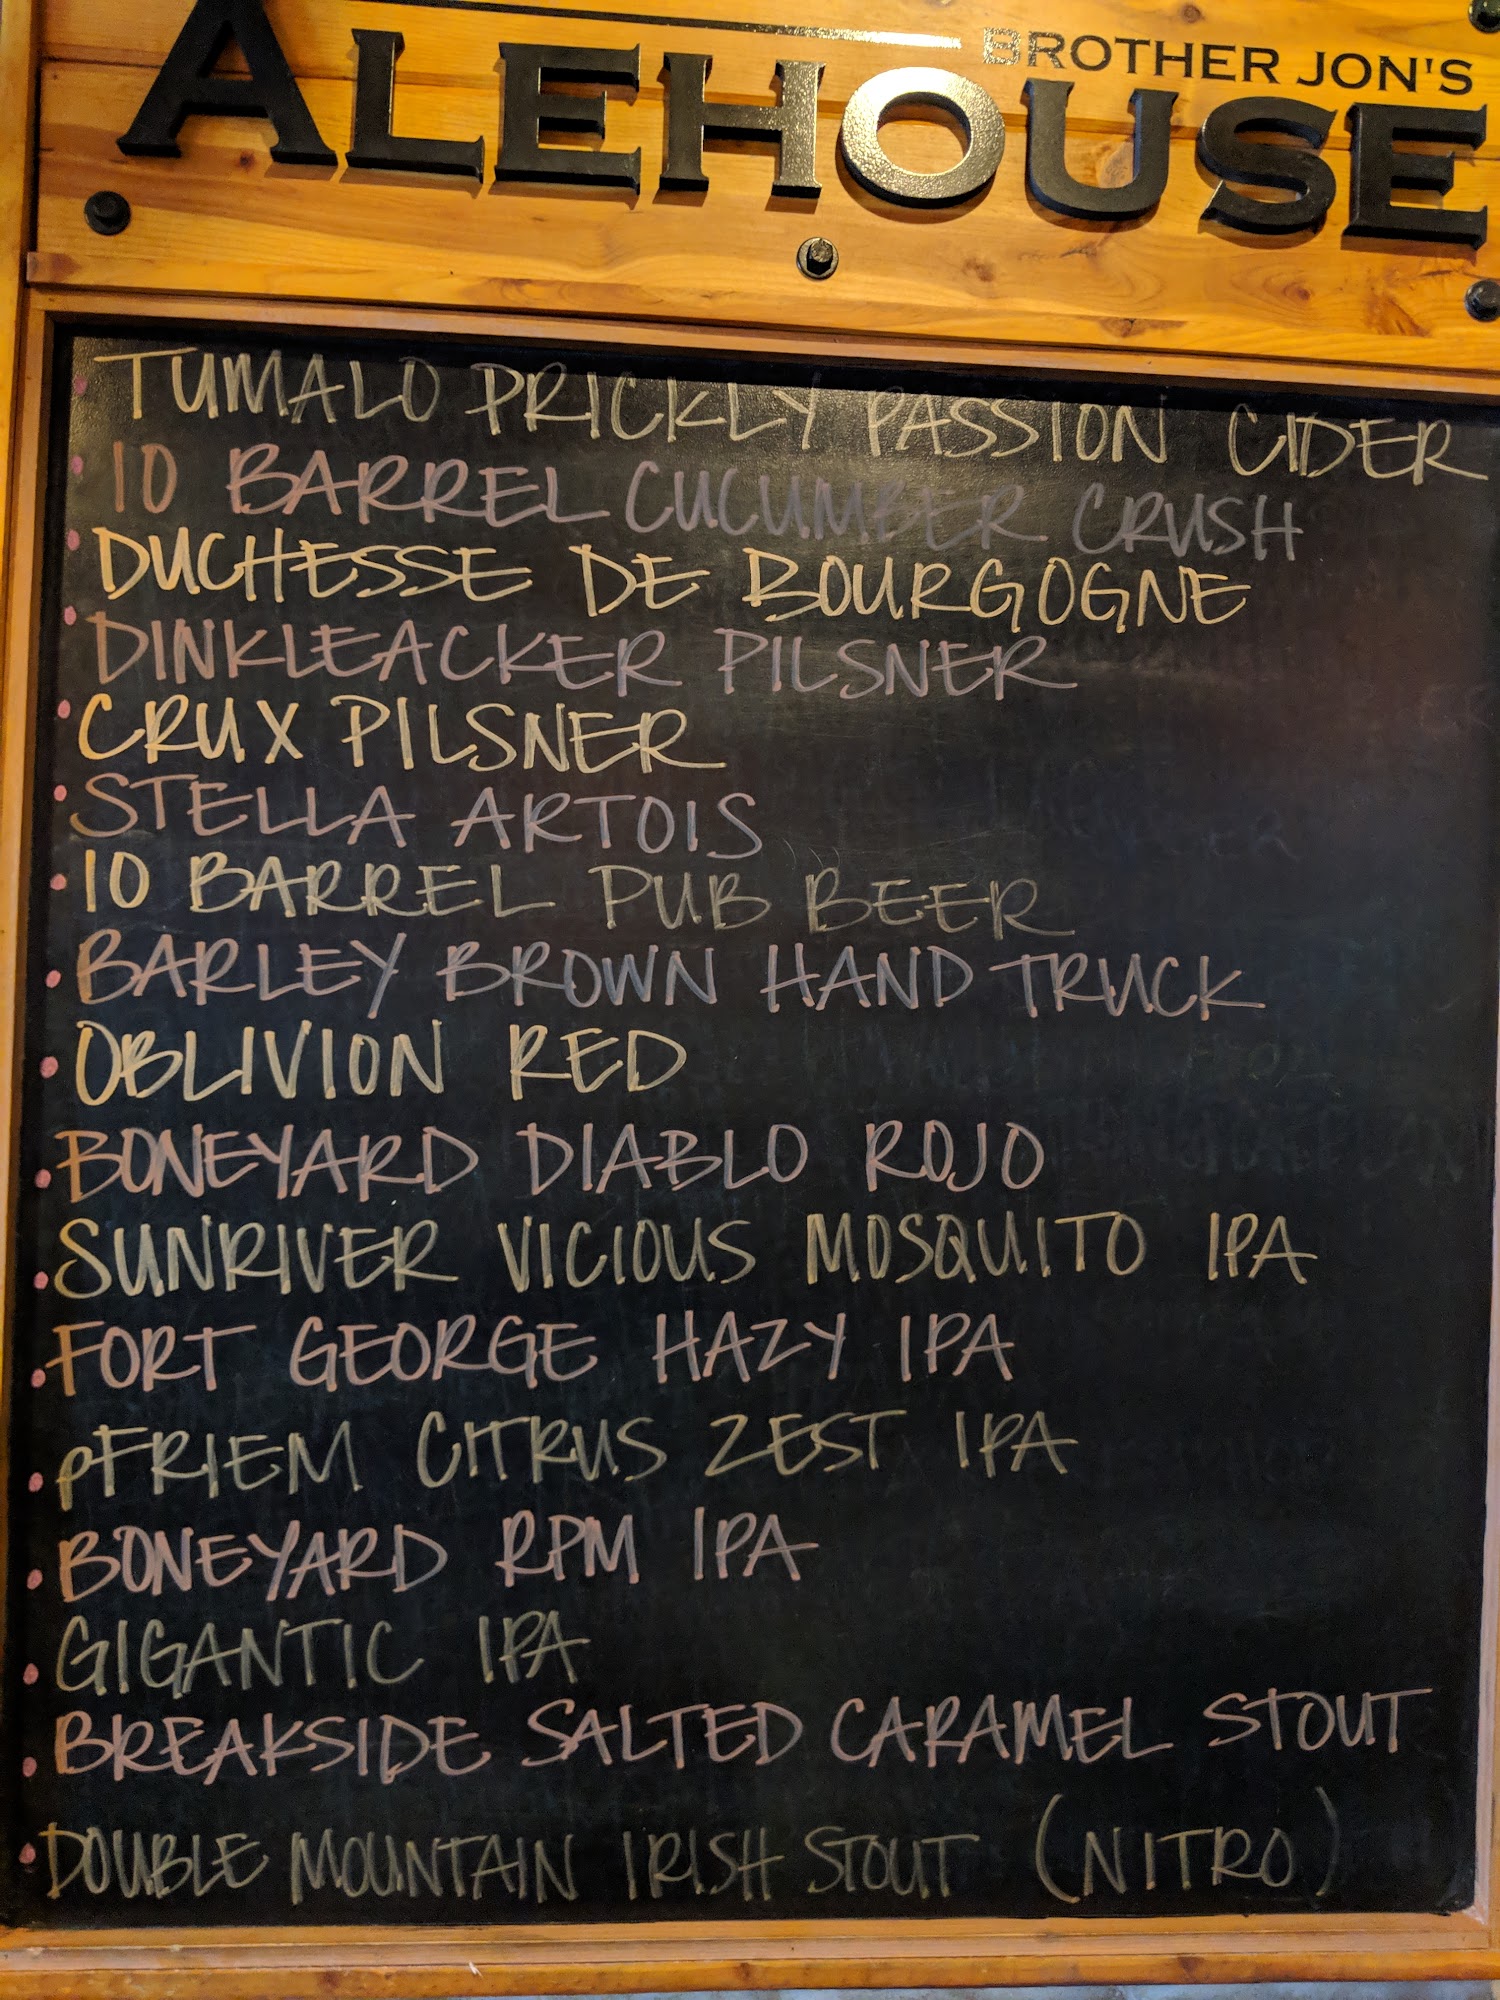 BROTHER JON'S
ALEHOUSE
TUMALO PRICKLY PASSION CIDER
10 BARREL CUCUMBER CRUSH
DUCHESSE DE BOURGOGNE
DINKLEACKER PILSNER
CRUX PILSNER
STELLA ARTOIS
10 BARREL PUB BEER
BARLEY BROWN HAND TRUCK
OBLIVION RED
BONEYARD DIABLO ROJO
SUNRIVER VICIOUS MOSQUITO IPA
FORT GEORGE HAZY IPA
pFRIEM CITRUS ZEST IPA
BONEYARD RPM IPA
GIGANTIC IPA
BREAKSIDE SALTED CARAMEL STOUT
DOUBLE MOUNTAIN IRISH STOUT (NITRO)